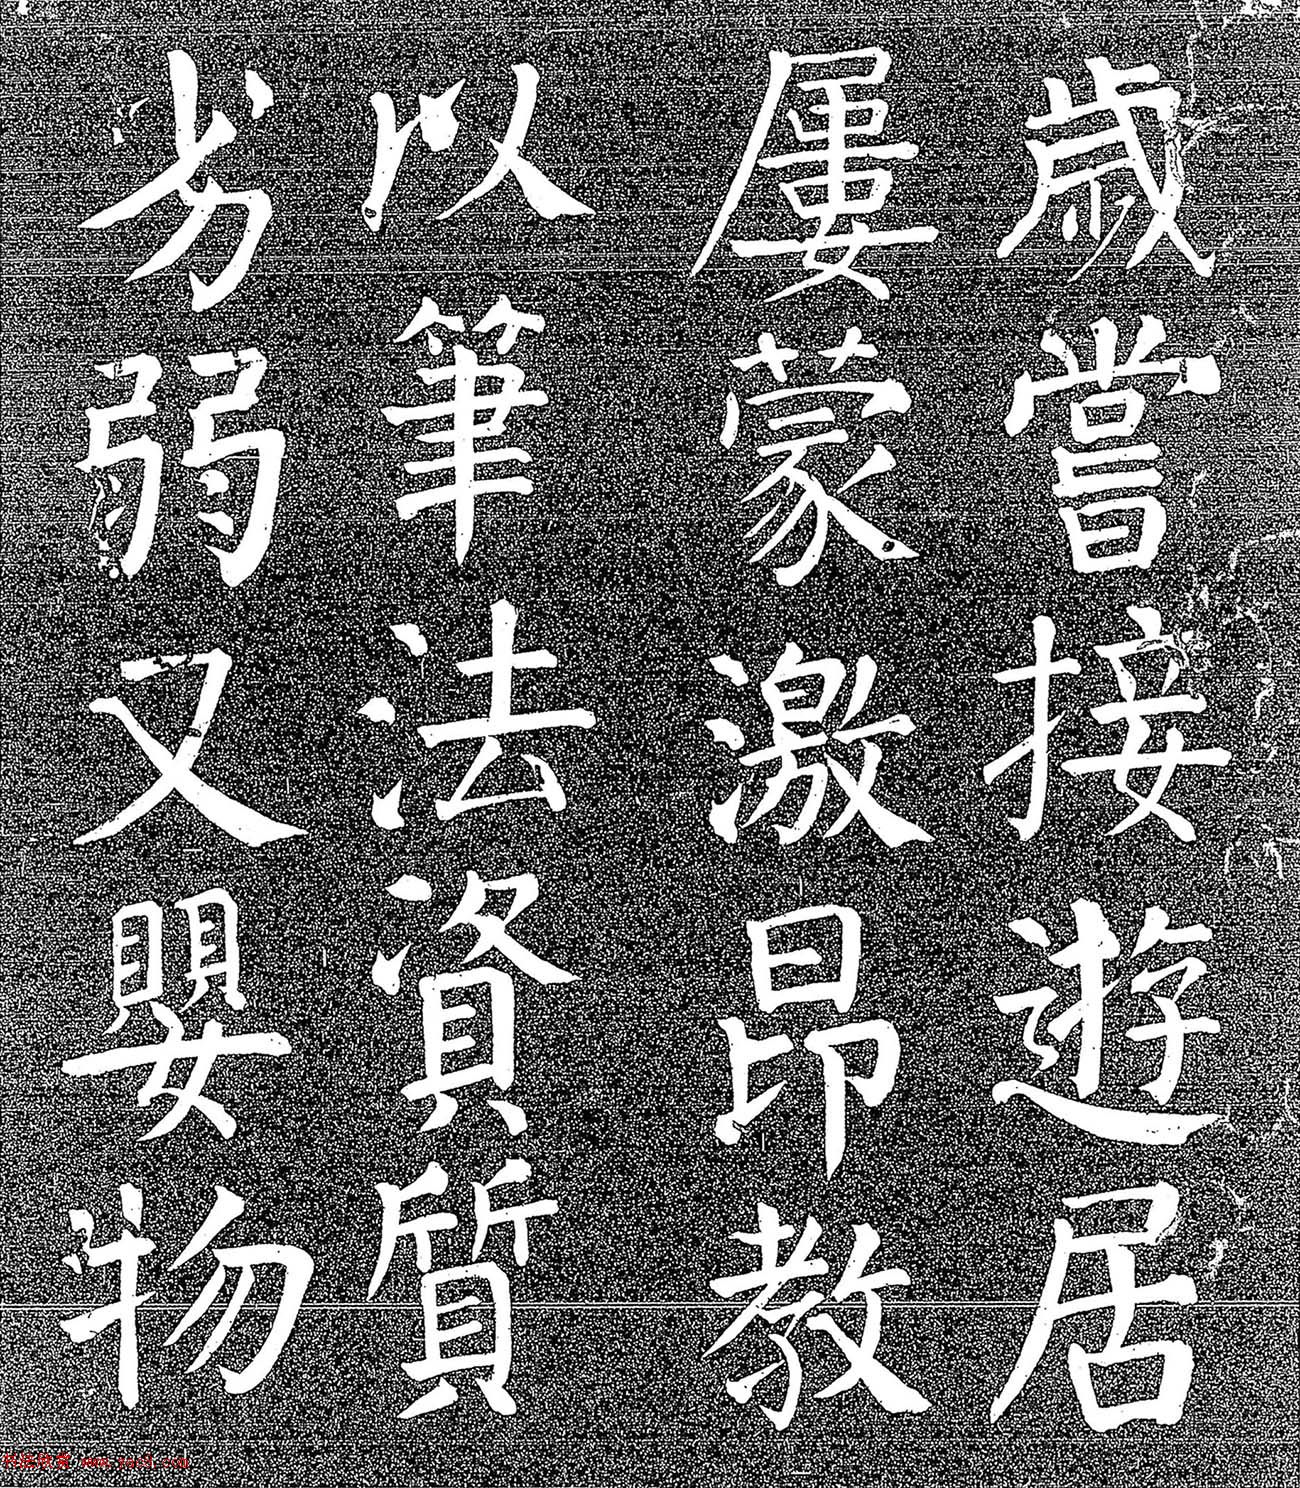 歲嘗接遊居
屢蒙激昂教
以筆法資質
劣弱又嬰物